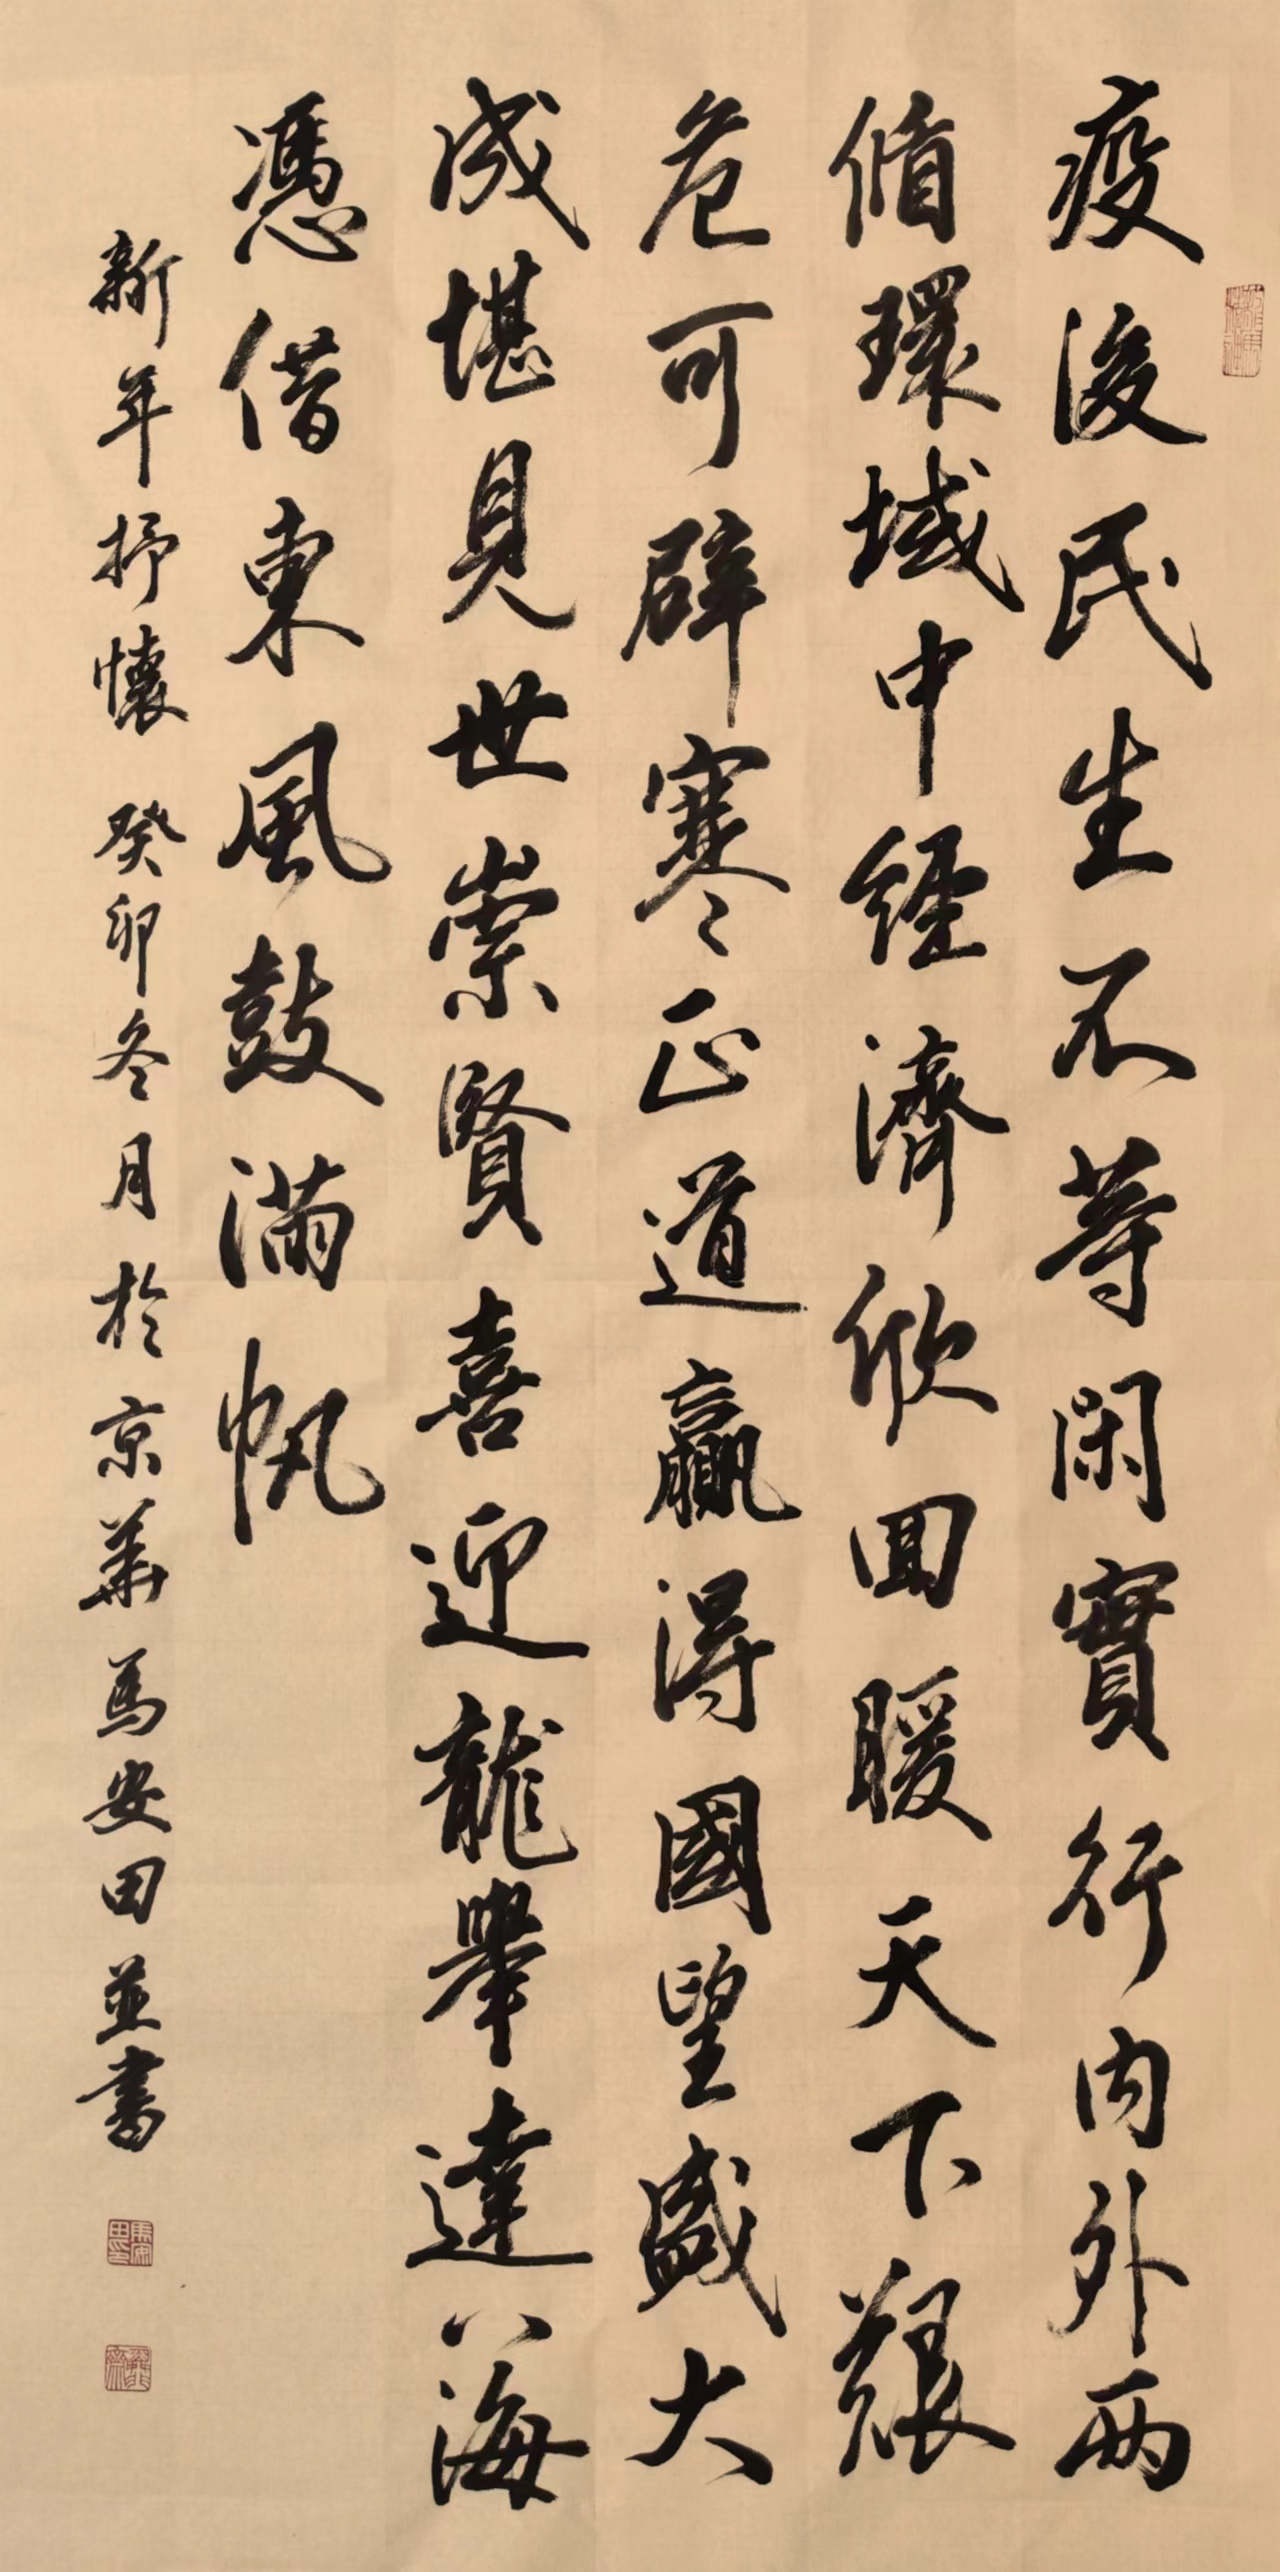 疫後民生不等閑實行内外兩
脩環域中經濟欣回暖天下艱
危可辟寒正道贏得國望盛大
成堪見世崇賢喜迎龍舉達八海
憑借東風鼓滿帆
新年抒懷 癸卯冬月於京華馬安田並書
馬安田印